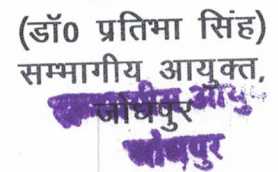 (डॉ0 प्रतिभा सिंह)
सम्भागीय आयुक्त,
जोधपुर
सम्भागीय आयु
जोधपुर